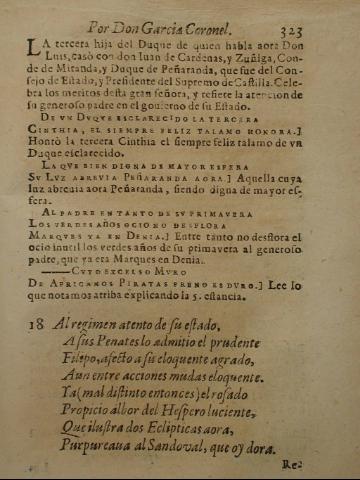 Por Don Garcia Coronel. 323
LA tercera hija del Duque de quien habla aora Don
Luis, casò con don Iuan de Cardenas, y Zuñiga, Con-
de de Miranda, y Duque de Peñaranda, que fue del Con-
sejo de Estado, y Presidente del Supremo de Castilla. Cele-
bra los meritos desta gran señora, y refiere la atencion de
su generoso padre en el gouierno de su Estado.
DE VN DVQVE ESCLARECIDO LA TERCERA
CINTHIA, EL SIEMPRE FELIZ TALAMO HONORA.]
Honrò la tercera Cinthia el siempre feliz talamo de vn
Duque esclarecido.
LA QVE BIEN DIGNA DE MAYOR ESFERA
SV LVZ ABREVIA PEÑARANDA AORA.] Aquella cuya
luz abreuia aora Peñaranda, siendo digna de mayor es-
fera.
AL PADRE EN TANTO DE SV PRIMAVERA
LOS VERDES AÑOS OCIO NO DESFLORA
MARQVES YA EN DENIA.] Entre tanto no desflora el
ocio inutil los verdes años de su primavera al generoso
padre, que ya era Marques en Denia.
——CVYO EXCELSO MVRO
DE AFRICANOS PIRATAS FRENO ES DVRO.] Lee lo
que notamos arriba explicando la 5. estancia.
18 Al regimen atento de su estado,
A sus Penates lo admitio el prudente
Filipo, afecto a su eloquente agrado,
Aun entre acciones mudas eloquente.
Ya (mal distinto entonces) el rosado
Propicio albor del Hespero luciente,
Que ilustra dos Eclipticas aora,
Purpureaua al Sandoval, que oy dora.
Re-